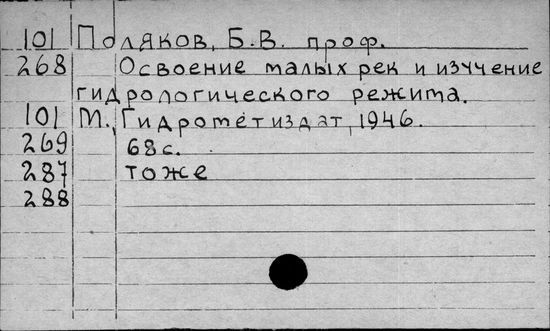 101 Поляков, Б.В. проф.
268 Освоение малых рек и изучение
гидрологического режима.
101 М., Гидрометиздат, 1946.
269 68 с.
287 тоже
288